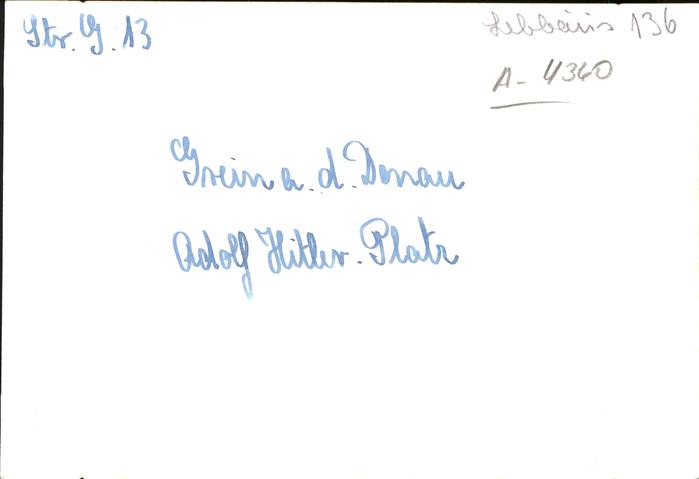 Str. G. 13
136
A-4340
Grein a. d. Donau
Adolf Hitler-Platz